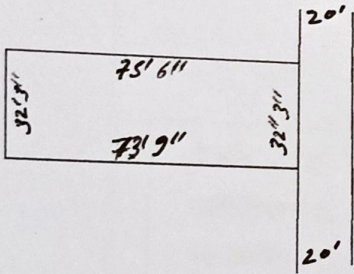 20'
75' 6"
32' 3"
32" 3"
73' 9"
20'